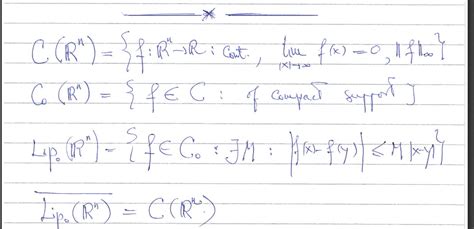 C(ℝⁿ) = { f: ℝⁿ → ℝ : Cont., lim_{|x|→∞} f(x) = 0, ‖f‖_∞ }
C₀(ℝⁿ) = { f ∈ C : of compact support }
Lip₀(ℝⁿ) = { f ∈ C₀ : ∃M : |f(x) - f(y)| ≤ M |x-y| }
\overline{Lip₀(ℝⁿ)} = C(ℝⁿ)